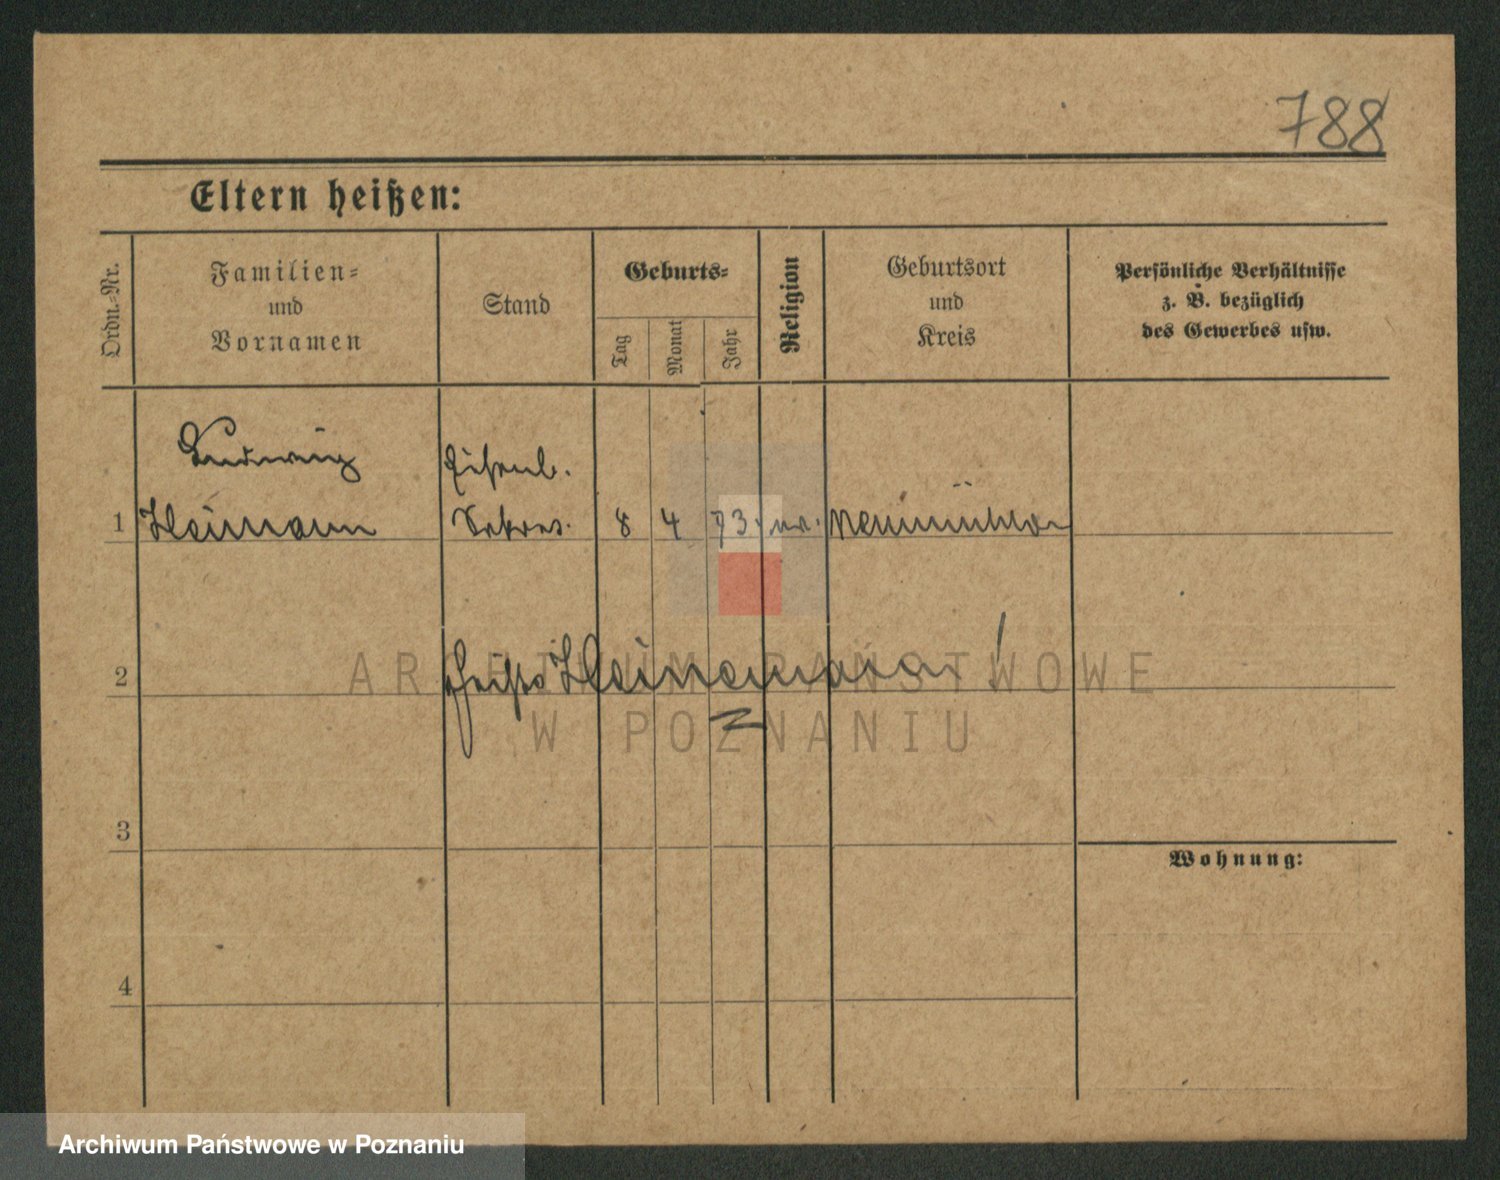 788
Eltern heißen:
Ordn.-Nr.
Familien-
und
Vornamen
Stand
Geburts-
Tag
Monat
Jahr
Religion
Geburtsort
und
Kreis
Persönliche Verhältnisse
z. B. bezüglich
des Gewerbes usw.
Ludwig
Eisenb.
1 Heimann Sekret. 8 4 73. ev. Neumühlen
2 heißt Heinemann!
3
Wohnung:
4
ARCHIWUM PAŃSTWOWE
W POZNANIU
Archiwum Państwowe w Poznaniu